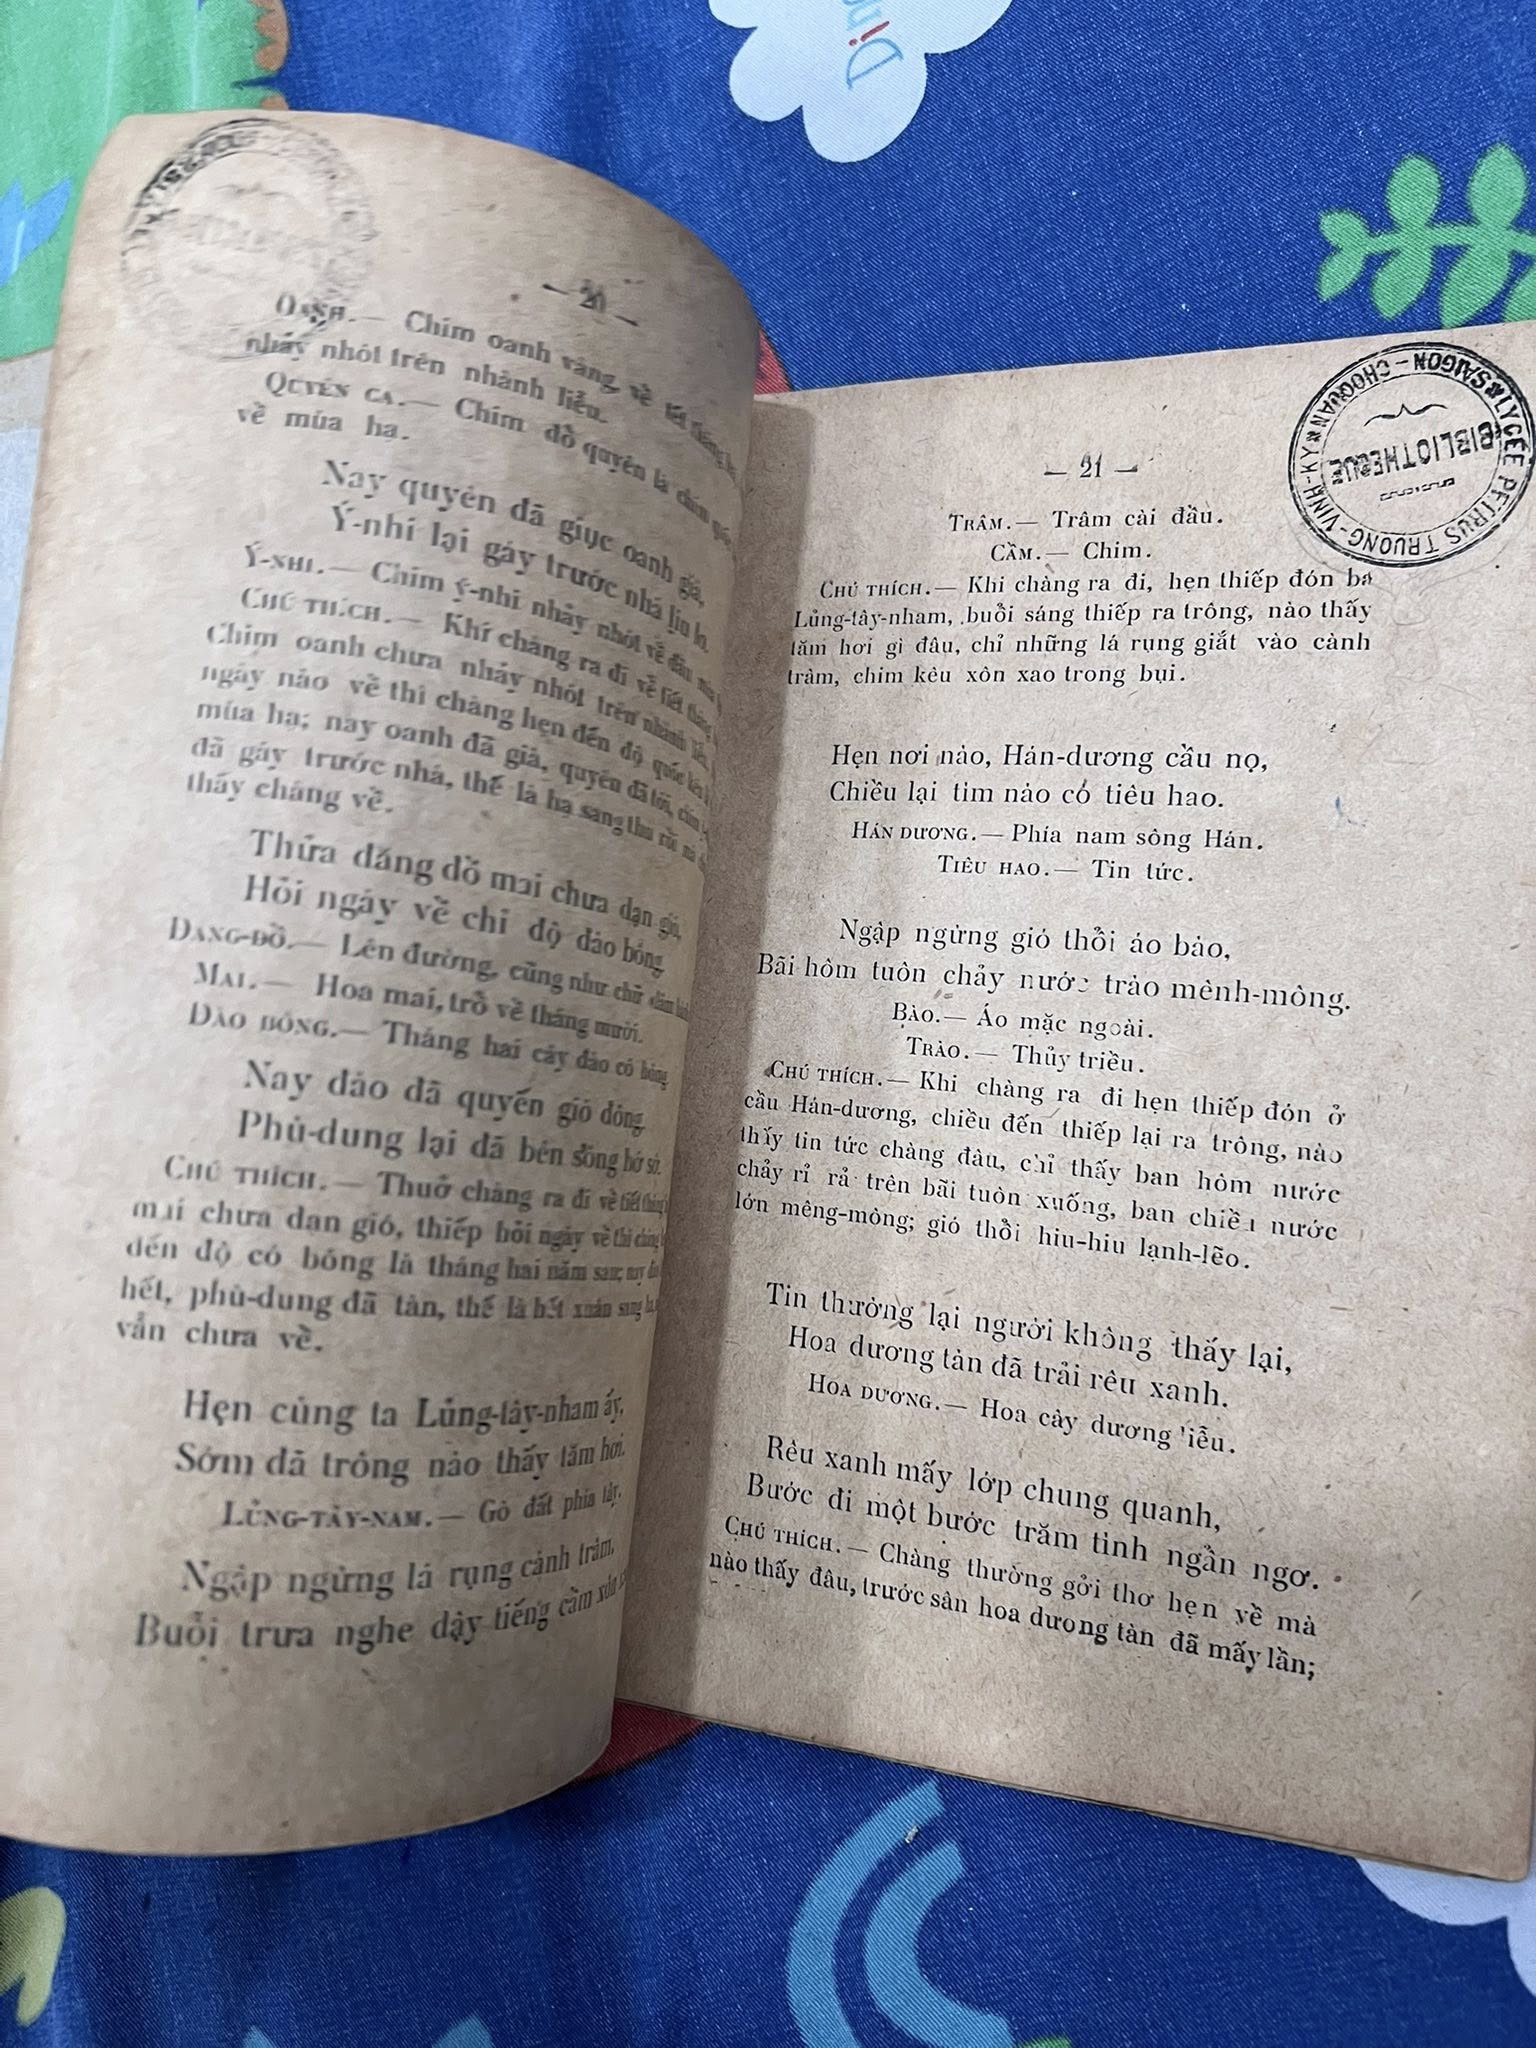 — 20 —
OANH.— Chim oanh vàng, về tết tháng
nhảy nhót trên nhành liễu.
QUYÊN CA.— Chim đỗ quyên là chim quốc
về mùa hạ.
Nay quyên đã giục oanh già,
Ý-nhi lại gáy trước nhà líu lo.
Ý-NHI.— Chim ý-nhi nhảy nhót về đầu mùa
CHÚ THÍCH.— Khi chàng ra đi về tiết tháng
Chim oanh chưa nhảy nhót trên nhành liễu,
ngày nào về thì chàng hẹn đến độ quốc kêu
mùa hạ; nay oanh đã già, quyên đã tới, chim
đã gáy trước nhà, thế là hạ sang thu rồi mà
thấy chàng về.
Thửa đăng đồ mai chưa dạn gió,
Hỏi ngày về chỉ độ đào bông.
ĐĂNG-ĐỒ.— Lên đường, cũng như chữ
MAI.— Hoa mai, trổ về tháng mười.
ĐÀO BÔNG.— Tháng hai cây đào có bông.
Nay đào đã quyến gió đông,
Phù-dung lại đã bên sông bơ sờ.
CHÚ THÍCH.— Thuở chàng ra đi về tiết tháng
mai chưa dạn gió, thiếp hỏi ngày về thì chàng
đến độ có bông là tháng hai năm sau; nay đào
hết, phù-dung đã tàn, thế là hết xuân sang hạ,
vẫn chưa về.
Hẹn cùng ta Lủng-tây-nham ấy,
Sớm đã trông nào thấy tăm hơi.
LỦNG-TÂY-NAM.— Gò đất phía tây.
Ngập ngừng lá rụng cành trâm,
Buổi trưa nghe dậy tiếng cầm xôn
— 21 —
LYCÉE PETRUS TRUONG-VINH-KY
SAIGON - CHOQUAN
BIBLIOTHEQUE
TRÂM.— Trâm cài đầu.
CẦM.— Chim.
CHÚ THÍCH.— Khi chàng ra đi, hẹn thiếp đón ba
Lủng-tây-nham, buổi sáng thiếp ra trông, nào thấy
tăm hơi gì đâu, chỉ những lá rụng giắt vào cành
trâm, chim kêu xôn xao trong bụi.
Hẹn nơi nào, Hán-dương cầu nọ,
Chiều lại tìm nào có tiêu hao.
HÁN DƯƠNG.— Phía nam sông Hán.
TIÊU HAO.— Tin tức.
Ngập ngừng gió thổi áo bào,
Bãi hôm tuôn chảy nước trào mênh-mông.
BÀO.— Áo mặc ngoài.
TRÀO.— Thủy triều.
CHÚ THÍCH.— Khi chàng ra đi hẹn thiếp đón ở
cầu Hán-dương, chiều đến thiếp lại ra trông, nào
thấy tin tức chàng đâu, chỉ thấy ban hôm nước
chảy rỉ rả trên bãi tuôn xuống, ban chiều nước
lớn mêng-mông; gió thổi hiu-hiu lạnh-lẽo.
Tin thường lại người không thấy lại,
Hoa dương tàn đã trải rêu xanh.
HOA DƯƠNG.— Hoa cây dương liễu.
Rêu xanh mấy lớp chung quanh,
Bước đi một bước trăm tình ngẩn ngơ.
CHÚ THÍCH.— Chàng thường gởi thơ hẹn về mà
nào thấy đâu, trước sân hoa dương tàn đã mấy lần;